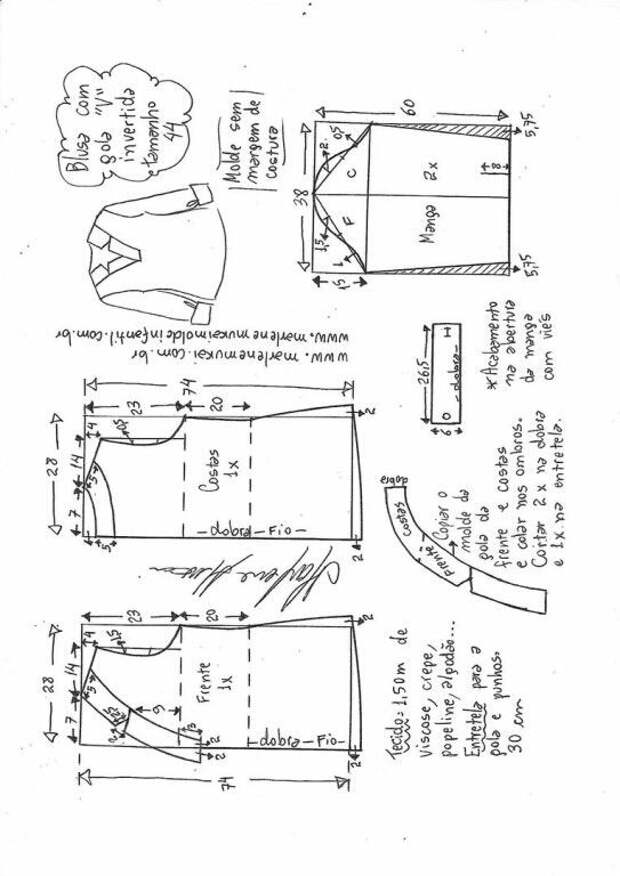 Blusa com
gola "V"
invertida
tamanho
44
Molde sem
margem de
costura
www.marlenemukai.com.br
www.marlenemukaimoldeinfantil.com.br
28
7
14
4
5
23
20
74
Frente
1x
9
3
2
2
2
2
dobra - Fio -
74
28
7
14
4
3
5
23
20
74
Costas
1x
dobra - Fio -
2
2
38
60
15
1,5
2
0,5
1
F
C
Manga
2x
8
5,75
5,75
26,5
6
dobra
*Acabamento
na abertura
da manga
com viés
Costas
dobra
Frente
Copiar o
molde da
gola da
frente e costas
e colar nos ombros.
Cortar 2x na dobra
e 1x na entretela.
Tecido: 1,50m de
viscose, crepe,
popeline, algodão...
Entretela para a
gola e punhos.
30 cm